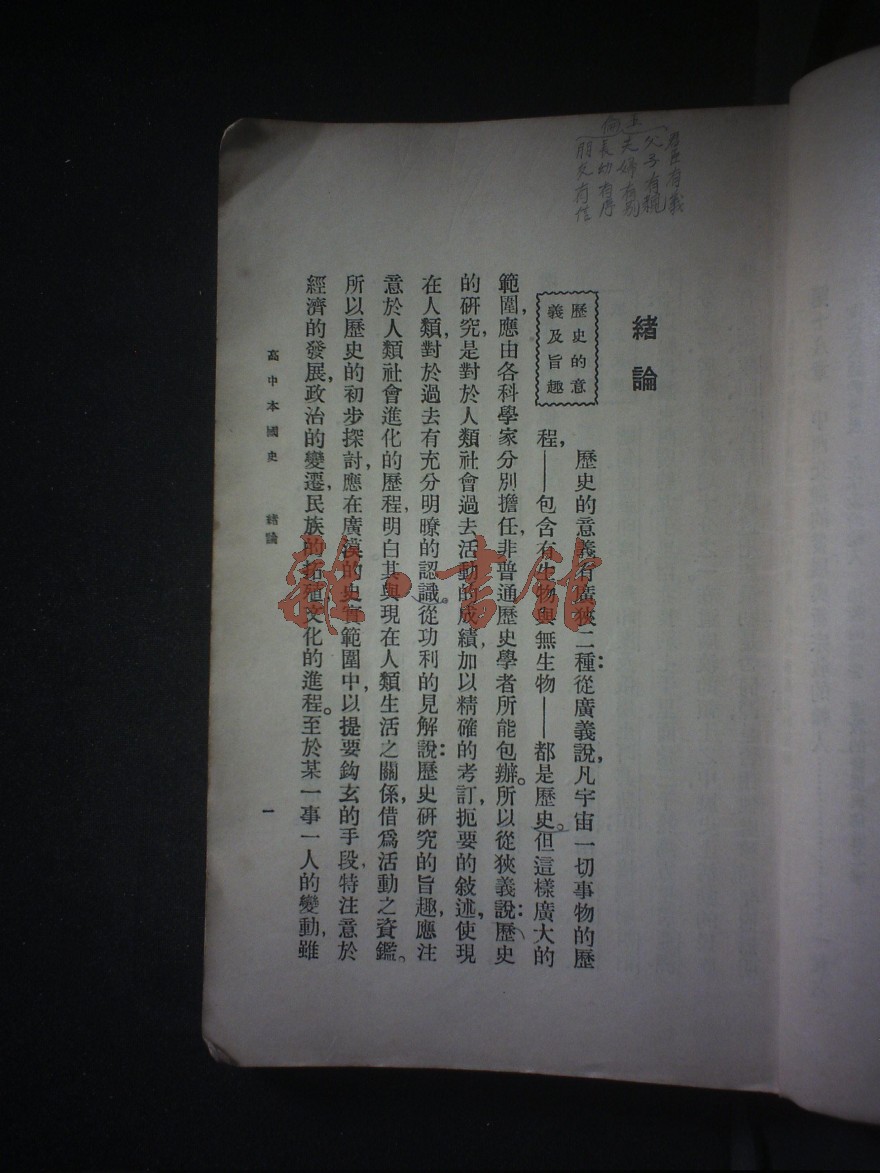 五倫
君臣有義
父子有親
夫婦有別
長幼有序
朋友有信
緒論
歷史的意
義及旨趣
歷史的意義有廣狹二種：從廣義說，凡宇宙一切事物的歷
程，——包含有生物與無生物——都是歷史。但這樣廣大的
範圍，應由各科學家分別擔任，非普通歷史學者所能包辦。所以從狹義說：歷史
的研究，是對於人類社會過去活動的成績，加以精確的考訂，扼要的敍述，使現
在人類，對於過去有充分明瞭的認識。從功利的見解說：歷史研究的旨趣，應注
意於人類社會進化的歷程，明白其與現在人類生活之關係，借爲活動之資鑑。
所以歷史的初步探討，應在廣漠的史實範圍中，以提要鈎玄的手段，特注意於
經濟的發展，政治的變遷，民族的拓殖，文化的進程。至於某一事一人的變動，雖
高中本國史　緒論
一
雜·書館